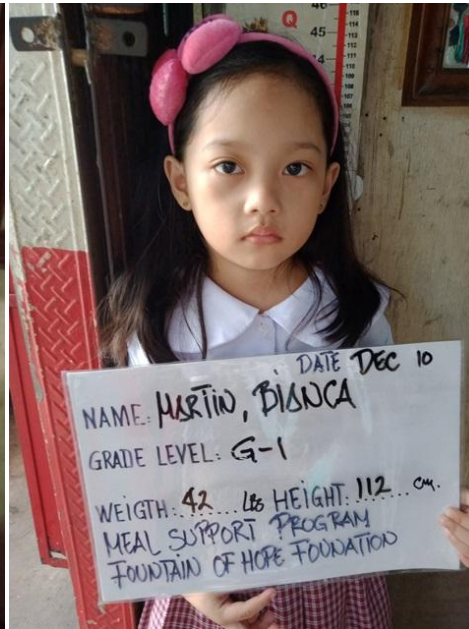 DATE DEC 10
NAME: MARTIN, BIANCA
GRADE LEVEL: G-1
WEIGTH: 42 ... Lbs HEIGHT: 112 ... cm.
MEAL SUPPORT PROGRAM
FOUNTAIN OF HOPE FOUNATION
Q
45
44